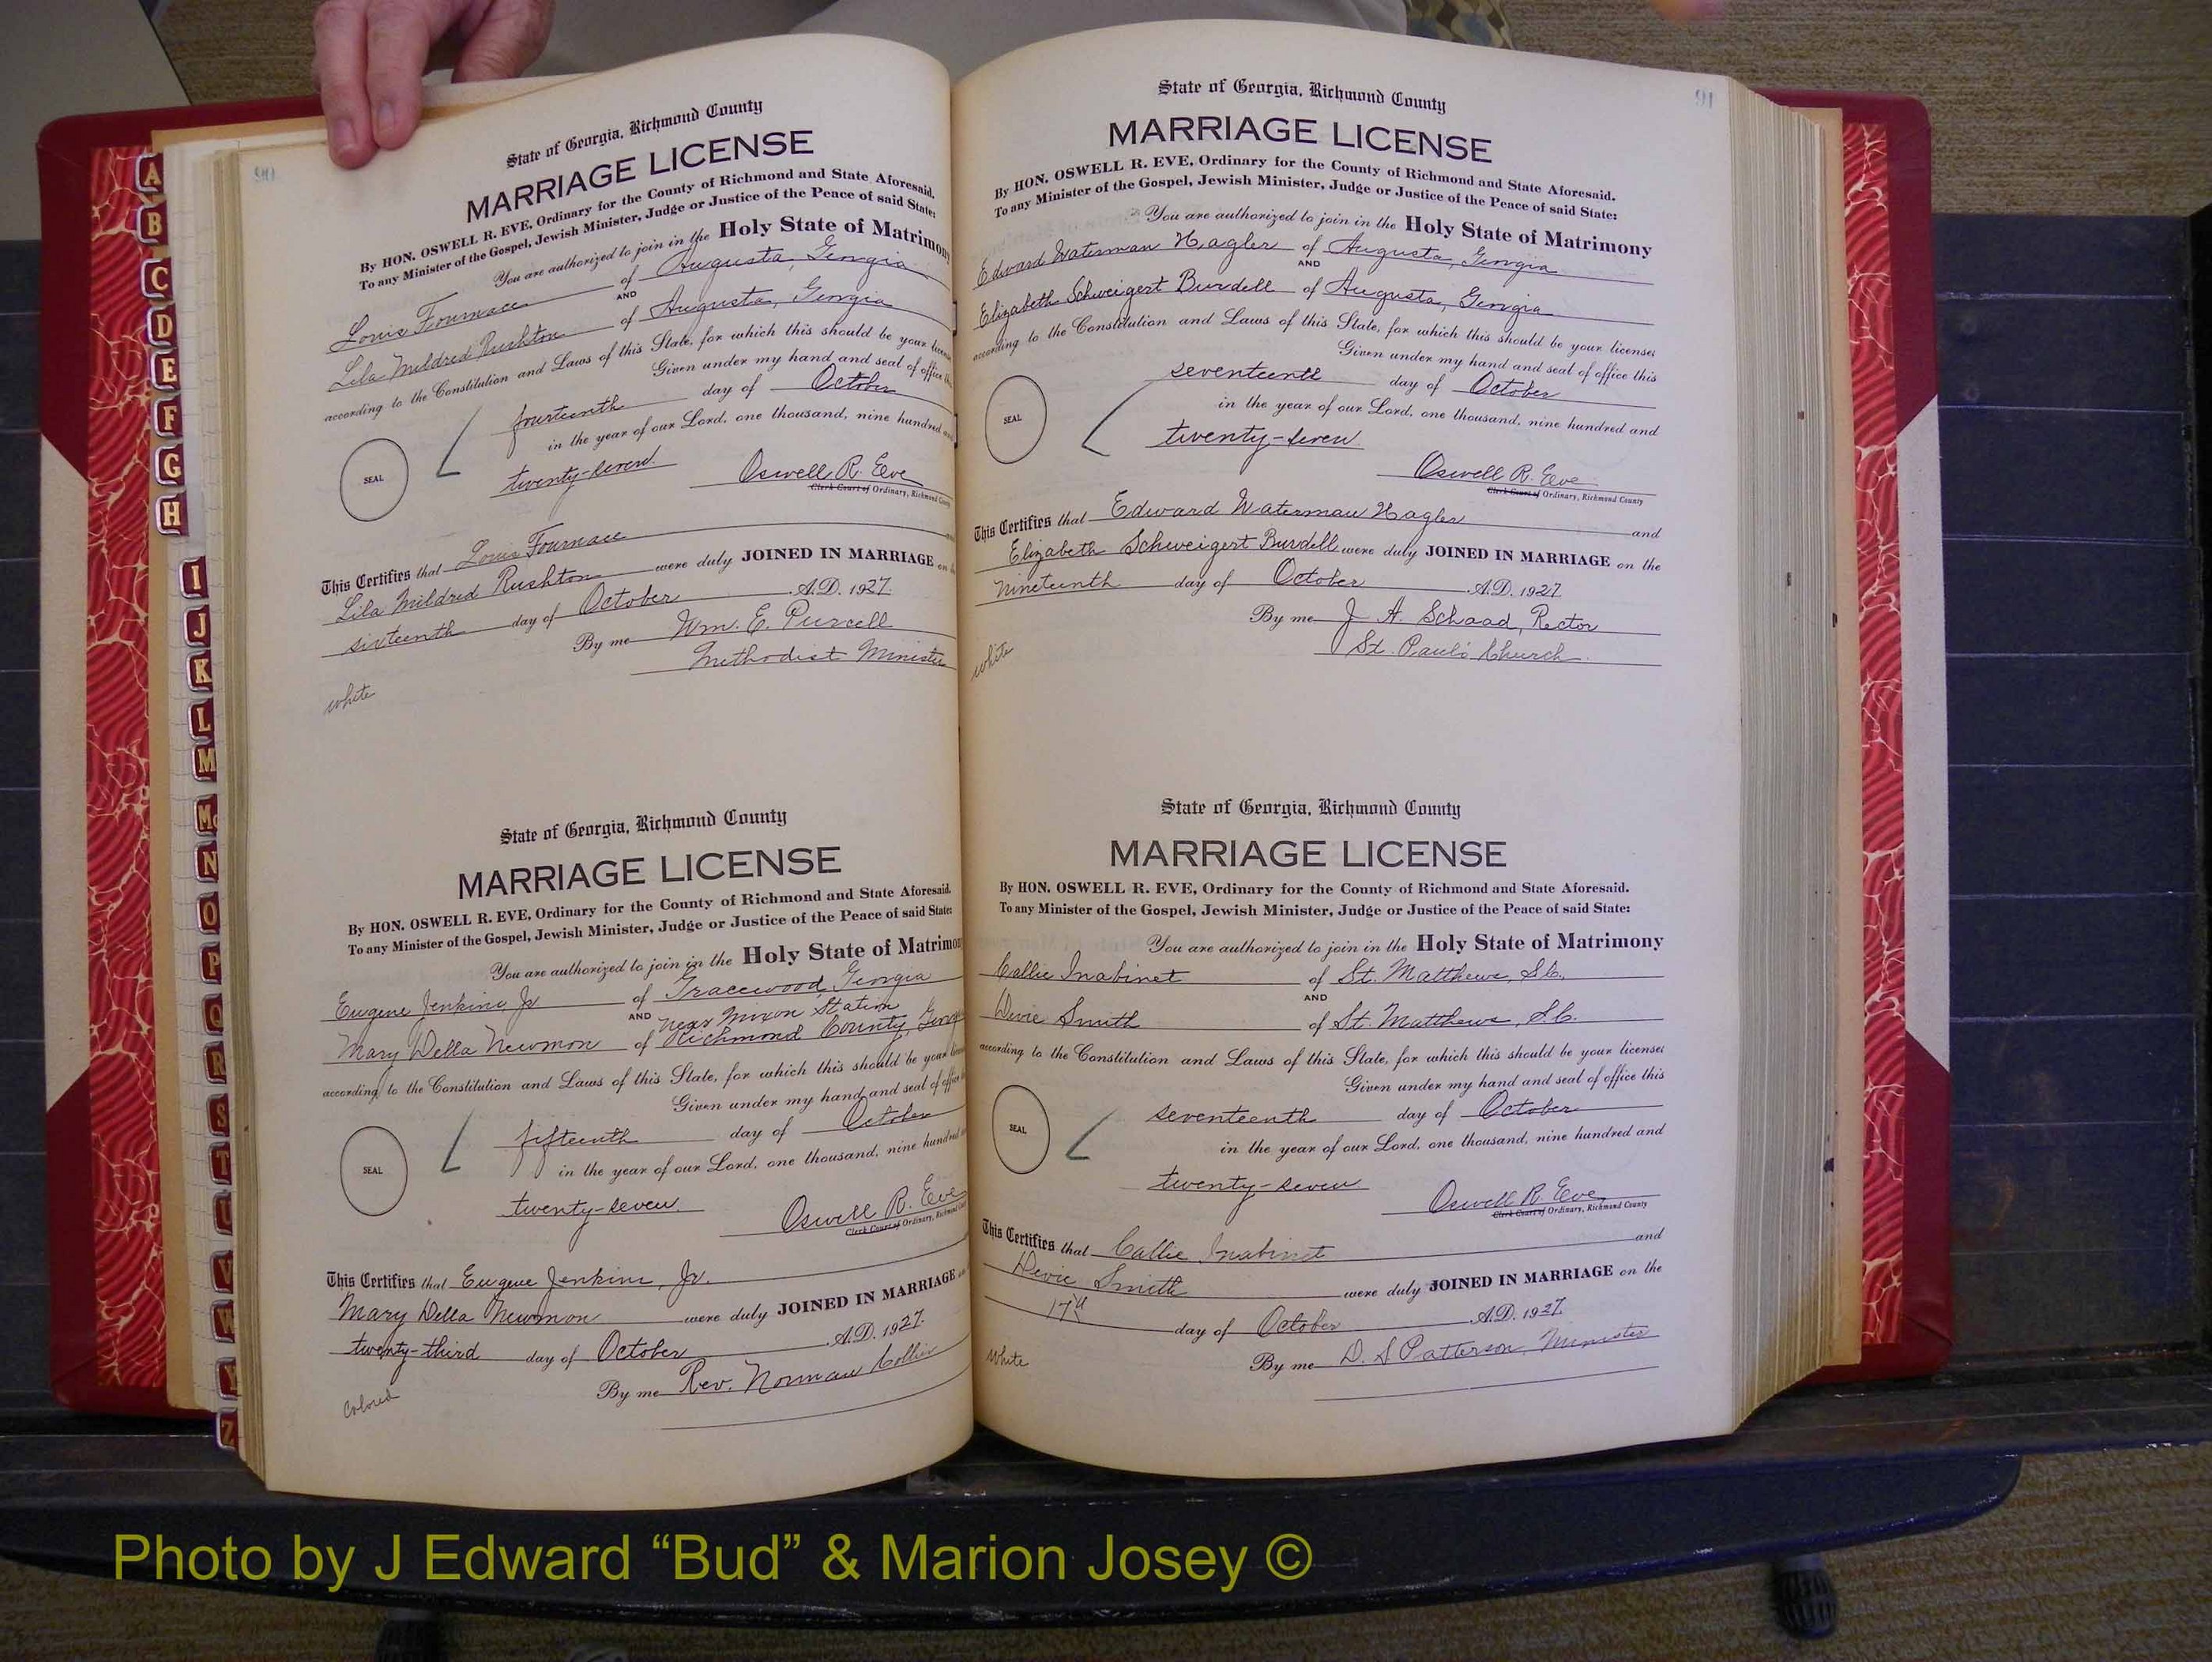 A
B
C
D
E
F
G
H
I
J
K
L
M
Mc
N
O
P
Q
R
S
T
U
V
W
Y
Z
90
State of Georgia, Richmond County
MARRIAGE LICENSE
By HON. OSWELL R. EVE, Ordinary for the County of Richmond and State Aforesaid.
To any Minister of the Gospel, Jewish Minister, Judge or Justice of the Peace of said State:
You are authorized to join in the Holy State of Matrimony
Louis Fournace of Augusta, Georgia
AND
Lila Mildred Rushton of Augusta, Georgia
according to the Constitution and Laws of this State, for which this should be your license
Given under my hand and seal of office this
fourteenth day of October
in the year of our Lord, one thousand, nine hundred and
SEAL
twenty-seven.
Oswell R. Eve
Clerk Court of Ordinary, Richmond
This Certifies that Louis Fournace
Lila Mildred Rushton were duly JOINED IN MARRIAGE on the
sixteenth day of October A.D. 1927.
By me Wm. E. Purcell
Methodist Minister
white
State of Georgia, Richmond County
MARRIAGE LICENSE
By HON. OSWELL R. EVE, Ordinary for the County of Richmond and State Aforesaid.
To any Minister of the Gospel, Jewish Minister, Judge or Justice of the Peace of said State:
You are authorized to join in the Holy State of Matrimony
Eugene Jenkins Jr of Gracewood, Georgia
AND near Nixon Station
Mary Della Newmon of Richmond County, Georgia
according to the Constitution and Laws of this State, for which this should be your license
Given under my hand and seal of office
fifteenth day of October
in the year of our Lord, one thousand, nine hundred
SEAL
twenty-seven.
Oswell R. Eve
Clerk Court of Ordinary, Richmond
This Certifies that Eugene Jenkins, Jr.
Mary Della Newmon were duly JOINED IN MARRIAGE on
twenty-third day of October A.D. 1927.
By me Rev. Norman Collier
colored
91
State of Georgia, Richmond County
MARRIAGE LICENSE
By HON. OSWELL R. EVE, Ordinary for the County of Richmond and State Aforesaid.
To any Minister of the Gospel, Jewish Minister, Judge or Justice of the Peace of said State:
You are authorized to join in the Holy State of Matrimony
Edward Waterman Hagler of Augusta, Georgia
AND
Elizabeth Schweigert Burdell of Augusta, Georgia
according to the Constitution and Laws of this State, for which this should be your licenses
Given under my hand and seal of office this
seventeenth day of October
in the year of our Lord, one thousand, nine hundred and
SEAL
twenty-seven
Oswell R. Eve
Clerk Court of Ordinary, Richmond County
This Certifies that Edward Waterman Hagler and
Elizabeth Schweigert Burdell were duly JOINED IN MARRIAGE on the
nineteenth day of October A.D. 1927.
By me J. A. Schaad, Rector
St. Paul's Church.
white
State of Georgia, Richmond County
MARRIAGE LICENSE
By HON. OSWELL R. EVE, Ordinary for the County of Richmond and State Aforesaid.
To any Minister of the Gospel, Jewish Minister, Judge or Justice of the Peace of said State:
You are authorized to join in the Holy State of Matrimony
Callie Inabinet of St. Matthews, S.C.
AND
Devie Smith of St. Matthews, S.C.
according to the Constitution and Laws of this State, for which this should be your licenses
Given under my hand and seal of office this
seventeenth day of October
in the year of our Lord, one thousand, nine hundred and
SEAL
twenty-seven
Oswell R. Eve
Clerk Court of Ordinary, Richmond County
This Certifies that Callie Inabinet and
Devie Smith were duly JOINED IN MARRIAGE on the
17th day of October A.D. 1927.
By me D. S Patterson, Minister
white
Photo by J Edward “Bud” & Marion Josey ©